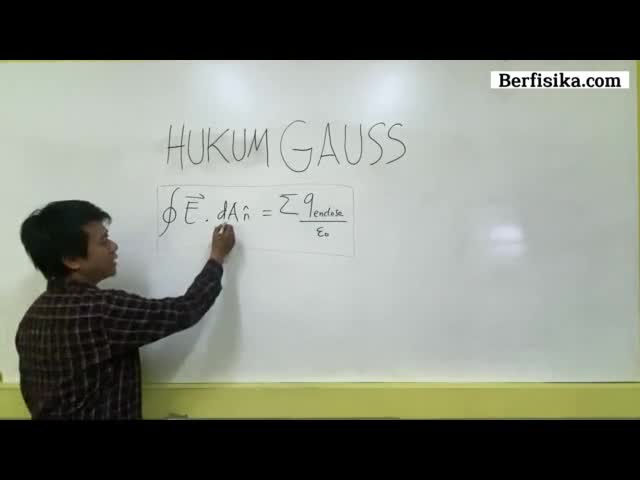 Berfisika.com
HUKUM GAUSS
∮ E⃗ . dA n̂ = Σ q enclose / ε₀